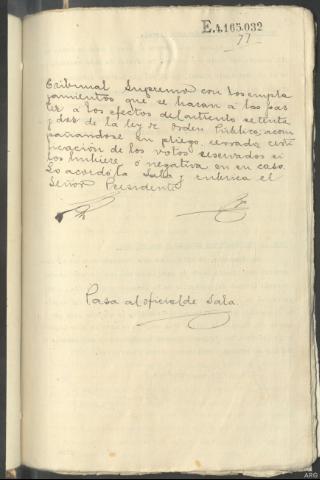 E.4.165.032
77
Tribunal Supremo con los empla
zamientos que se haran a las par
tes a los efectos del articulo setenta
y dos de la ley de Orden Público; acom
pañandose en pliego cerrado, certi
ficación de los votos reservados si
los hubiere o negativa en su caso.
Lo acordó la Sala y rubrica el
Señor Presidente
Pasa al oficial de Sala.
ARG